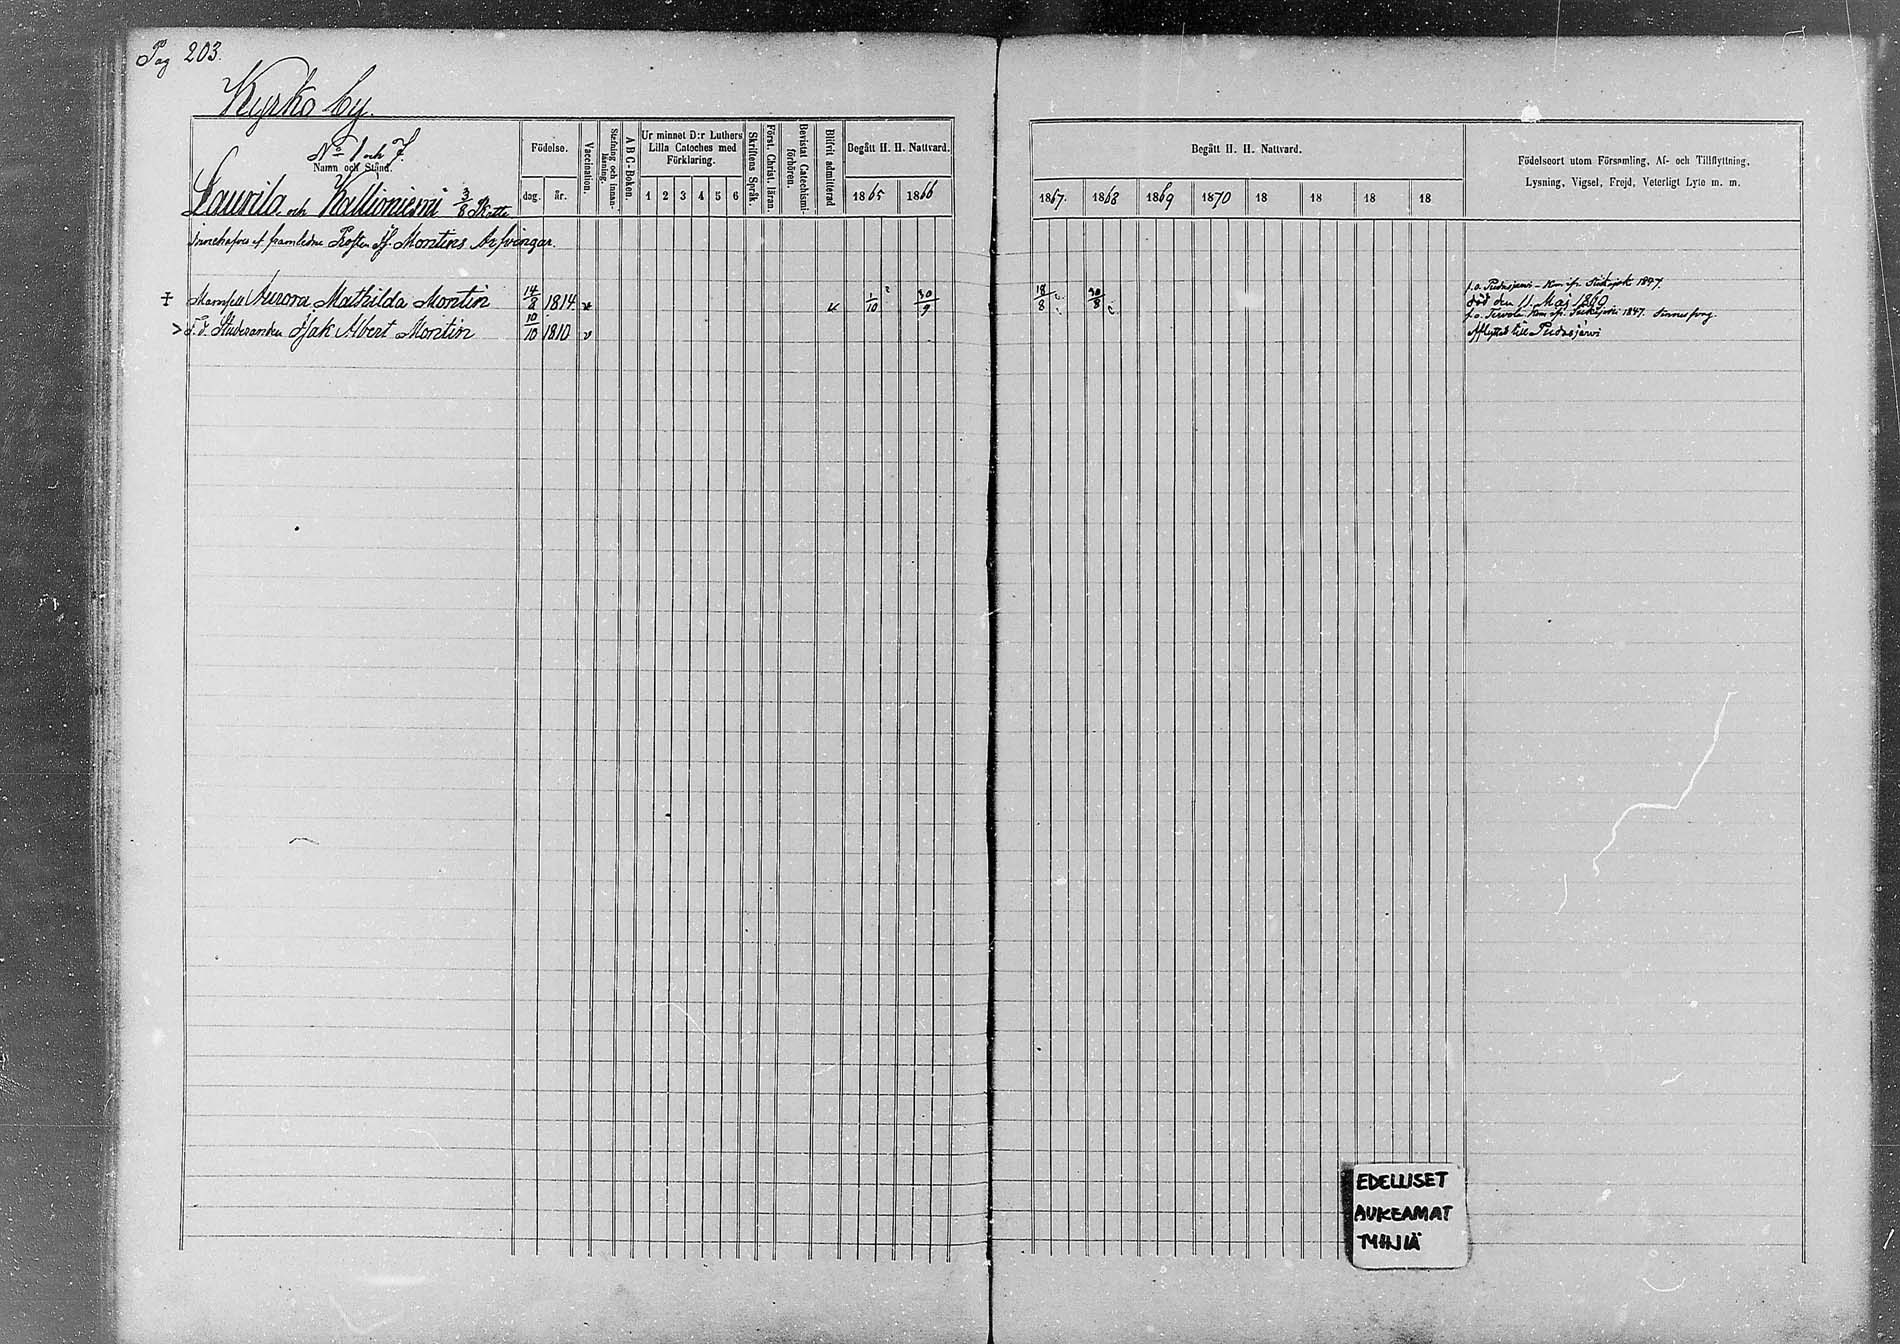 Pag 203.
Kyrko by.
No 1 och 7.
Namn och Stånd.
Laurila och Kallioniemi 3/8 Matt
Födelse.
dag. år.
Vaccination.
Stafning och innan-läsning.
A B C-Boken.
Ur minnet D:r Luthers
Lilla Catoches med
Förklaring.
1 2 3 4 5 6
Skriftens Språk.
Förat. Christ. läran.
Bevistat Catechismi-förhören.
Blifvit admitterad
Begått H. H. Nattvard.
1865 1866
Begått H. H. Nattvard.
1867. 1868 1869 1870 18 18 18 18
Födelseort utom Församling, Af- och Tillflyttning,
Lysning, Vigsel, Frejd, Veterligt Lyte m. m.
innehafves af framledne Prosten Montins Arfvingar.
Mamsell Aurora Mathilda Montin 14/8 1814 v 1/10 30/9 18/8 30/8
f.o. Pudasjärvi 1847.
död den 11 Maj
> F.d. Studeranden Isak Albert Montin 10/10 1810 v
f.o. Tervola 1847.
Afflyttat till Pudasjärvi
EDELLISET
AUKEAMAT
TYHJIÄ